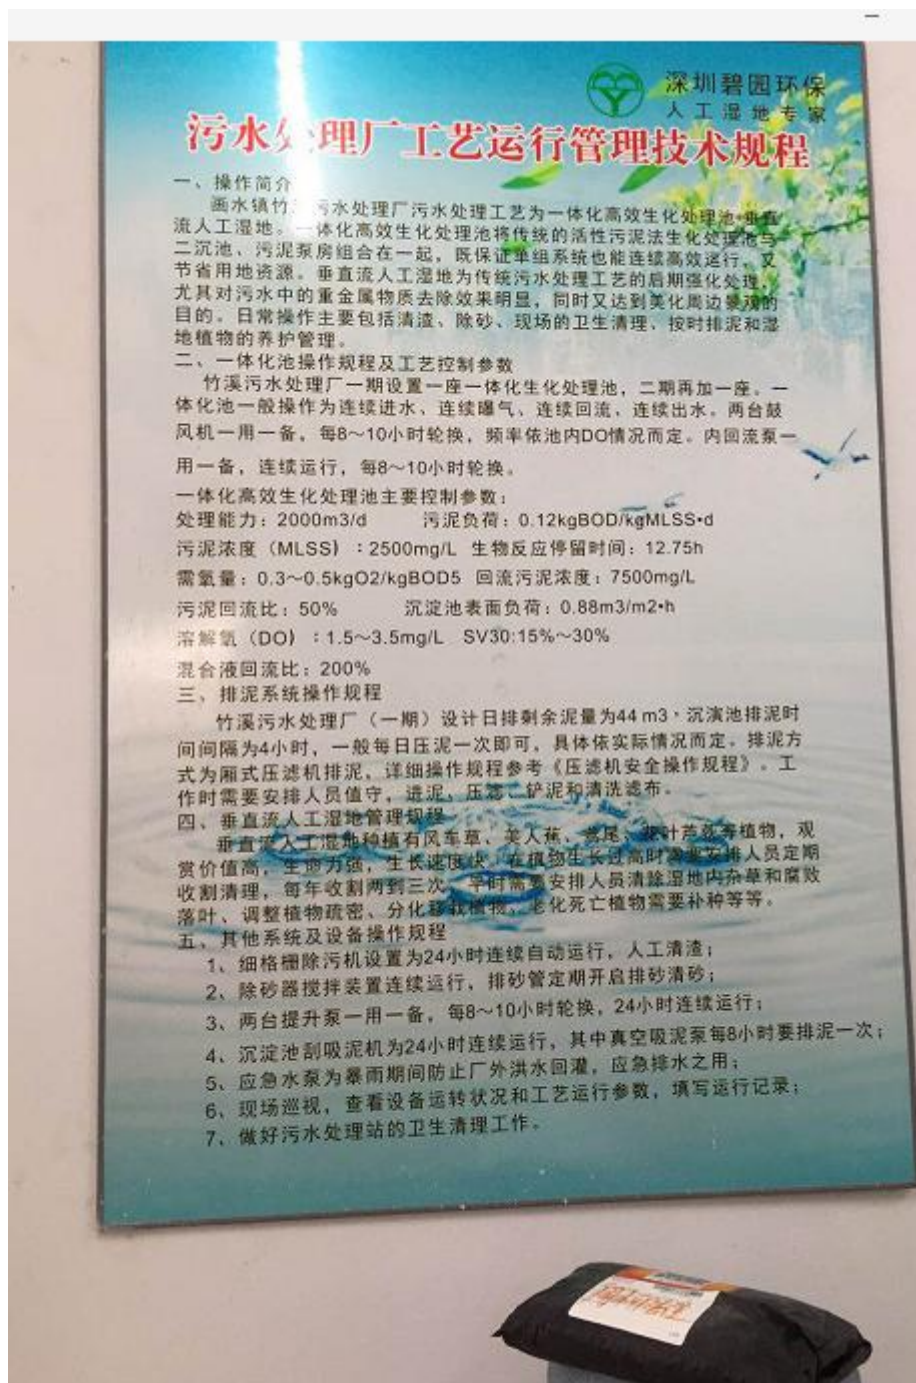 深圳碧园环保
人工湿地专家
污水处理厂工艺运行管理技术规程
一、操作简介
画水镇竹 污水处理厂污水处理工艺为一体化高效生化处理池+垂直
流人工湿地。一体化高效生化处理池将传统的活性污泥法生化处理池与
二沉池、污泥泵房组合在一起，既保证单组系统也能连续高效运行，又
节省用地资源。垂直流人工湿地为传统污水处理工艺的后期强化处理，
尤其对污水中的重金属物质去除效果明显，同时又达到美化周边景观的
目的。日常操作主要包括清渣、除砂、现场的卫生清理、按时排泥和湿
地植物的养护管理。
二、一体化池操作规程及工艺控制参数
竹溪污水处理厂一期设置一座一体化生化处理池，二期再加一座。一
体化池一般操作为连续进水、连续曝气、连续回流、连续出水。两台鼓
风机一用一备，每8～10小时轮换，频率依池内DO情况而定。内回流泵一
用一备，连续运行，每8～10小时轮换。
一体化高效生化处理池主要控制参数：
处理能力：2000m3/d 污泥负荷：0.12kgBOD/kgMLSS•d
污泥浓度（MLSS）：2500mg/L 生物反应停留时间：12.75h
需氧量：0.3～0.5kgO2/kgBOD5 回流污泥浓度：7500mg/L
污泥回流比：50% 沉淀池表面负荷：0.88m3/m2•h
溶解氧（DO）：1.5～3.5mg/L SV30:15%～30%
混合液回流比：200%
三、排泥系统操作规程
竹溪污水处理厂（一期）设计日排剩余泥量为44 m3，沉演池排泥时
间间隔为4小时，一般每日压泥一次即可，具体依实际情况而定。排泥方
式为厢式压滤机排泥，详细操作规程参考《压滤机安全操作规程》。工
作时需要安排人员值守，进泥、压滤、铲泥和清洗滤布。
四、垂直流人工湿地管理规程
垂直流人工湿地种植有风车草、美人蕉、鸢尾、花叶芦荻等植物，观
赏价值高，生命力强，生长速度快，在植物生长过高时需要安排人员定期
收割清理，每年收割两到三次、平时需要安排人员清除湿地内杂草和腐败
落叶、调整植物疏密、分化移栽植物、老化死亡植物需要补种等等。
五、其他系统及设备操作规程
1、细格栅除污机设置为24小时连续自动运行，人工清渣；
2、除砂器搅拌装置连续运行，排砂管定期开启排砂清砂；
3、两台提升泵一用一备，每8～10小时轮换，24小时连续运行；
4、沉淀池刮吸泥机为24小时连续运行，其中真空吸泥泵每8小时要排泥一次；
5、应急水泵为暴雨期间防止厂外洪水回灌，应急排水之用；
6、现场巡视，查看设备运转状况和工艺运行参数，填写运行记录；
7、做好污水处理站的卫生清理工作。